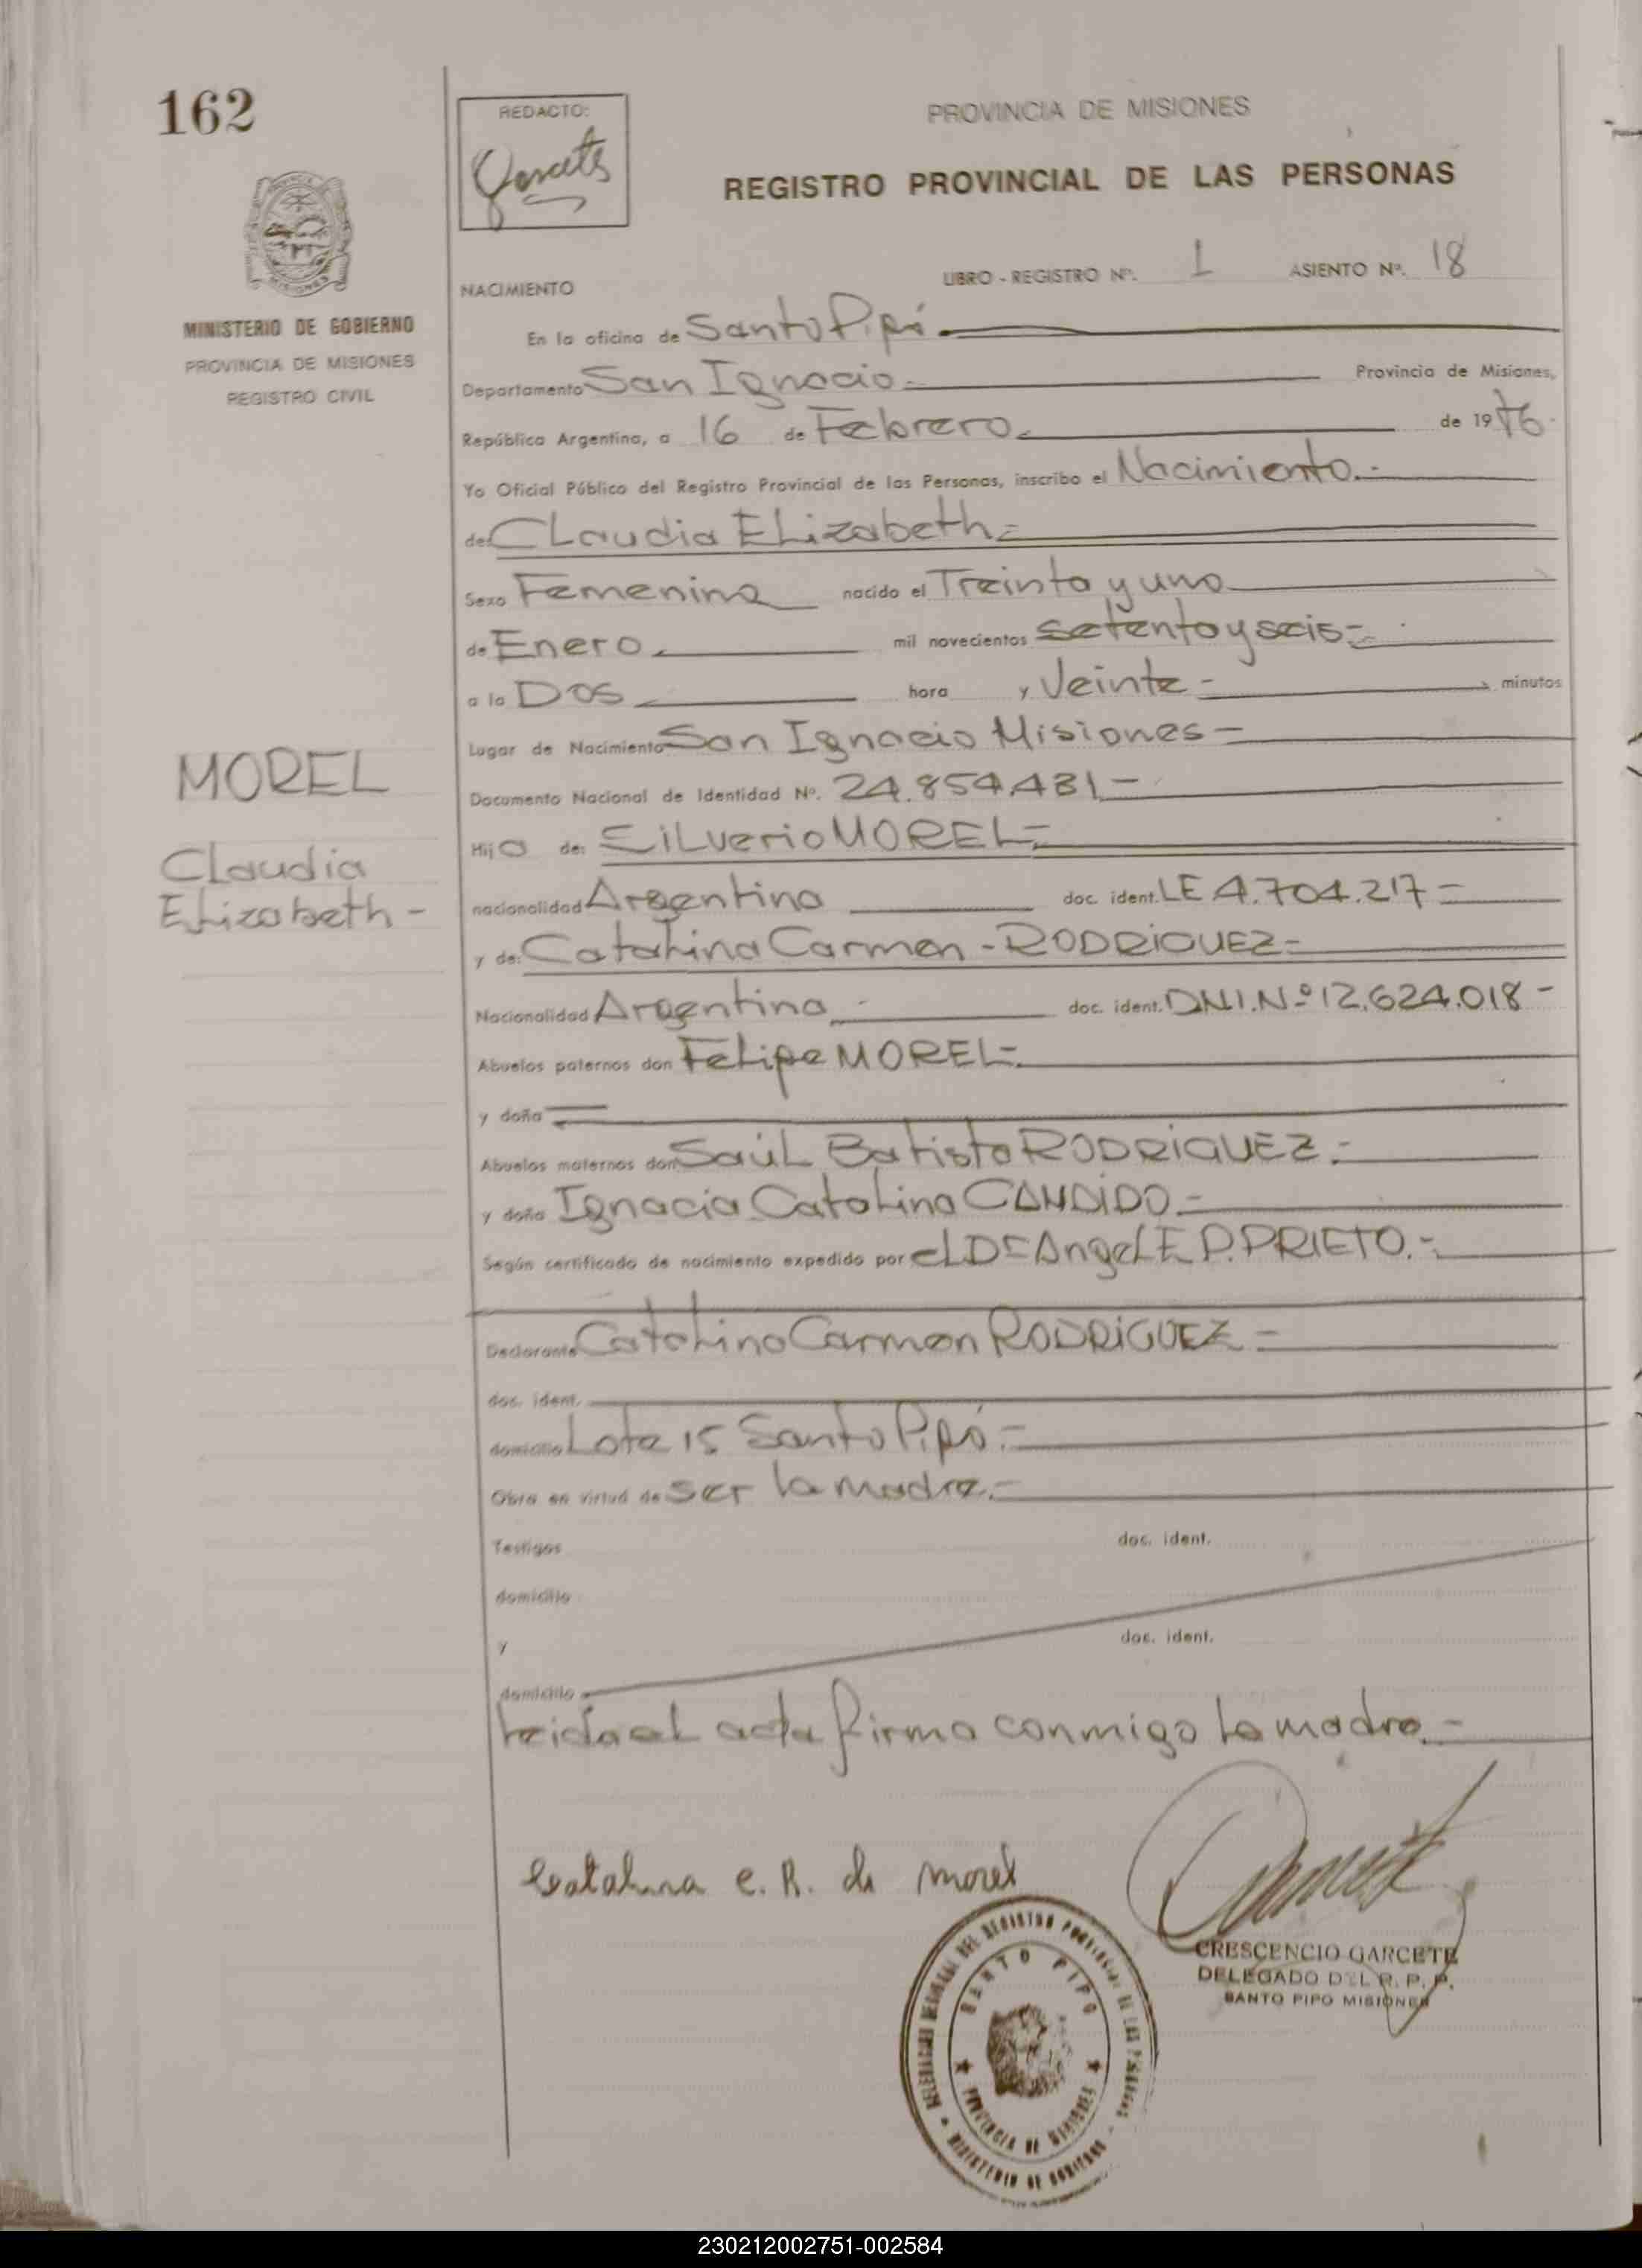 162
REDACTO:
Garcete
PROVINCIA DE MISIONES
REGISTRO PROVINCIAL DE LAS PERSONAS
LIBRO - REGISTRO Nº. 1 ASIENTO Nº. 18
MINISTERIO DE GOBIERNO
PROVINCIA DE MISIONES
REGISTRO CIVIL
NACIMIENTO
En la oficina de Santo Pipó
Departamento San Ignacio Provincia de Misiones,
República Argentina, a 16 de Febrero de 1976
Yo Oficial Público del Registro Provincial de las Personas, inscribo el Nacimiento.-
de: Claudia Elizabeth=
Sexo Femenino nacido el Treinta y uno
de Enero mil novecientos setenta y seis-
a la Dos hora y Veinte - minutos
Lugar de Nacimiento San Ignacio Misiones-
Documento Nacional de Identidad Nº. 24.854.481-
MOREL
Claudia
Elizabeth-
Hija de: Silverio MOREL=
nacionalidad Argentina doc. ident. LE 4.704.217-
y de: Catalina Carmen - RODRIGUEZ-
Nacionalidad Argentina doc. ident. DN.I.Nº 12.624.018-
Abuelos paternos don Felipe MOREL-
y doña
Abuelos maternos don Saúl Batista RODRIGUEZ.-
y doña Ignacia Catalina CANDIDO.-
Según certificado de nacimiento expedido por el Dr Angel E P. PRIETO.-
Declarante Catalina Carmen RODRIGUEZ-
doc. ident.
domicilio Lote 15 Santo Pipó.-
Obra en virtud de ser la madre.-
Testigos doc. ident.
domicilio
y doc. ident.
domicilio
Leida el acta firma conmigo la madre.-
Catalina C. R. de Morel
CRESCENCIO GARCETE
DELEGADO DEL R. P. P.
SANTO PIPO MISIONES
SANTO PIPO
PROVINCIA DE MISIONES
MINISTERIO DE GOBIERNO
230212002751-002584